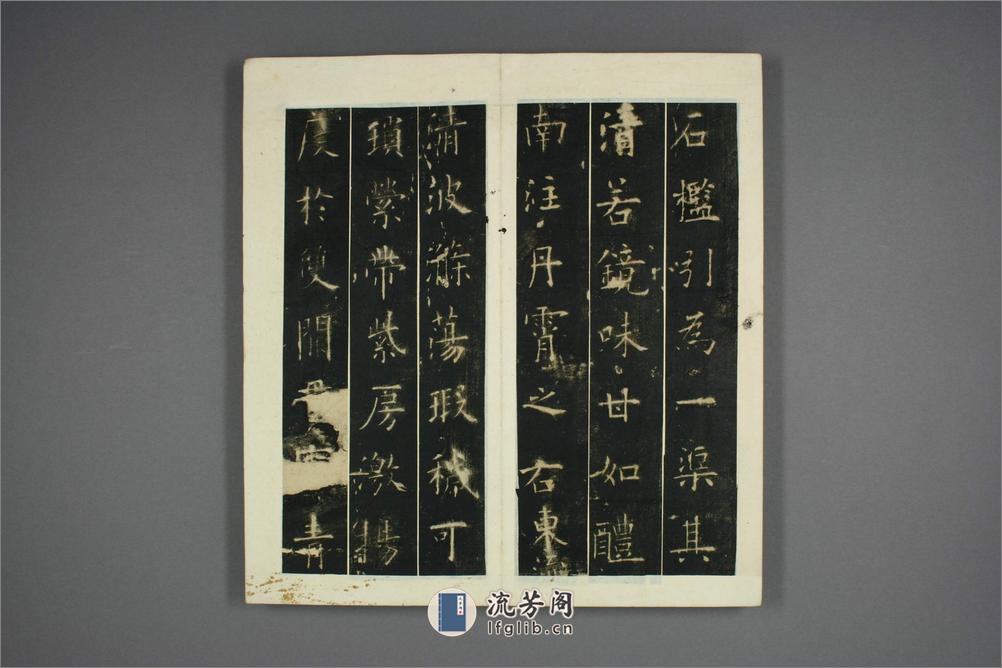 石檻引為一渠其
清若鏡味甘如醴
南注丹霄之右東流
清波滌蕩瑕穢可
瑣縈帶紫房激揚
度於雙闕青
流芳阁
lfglib.cn